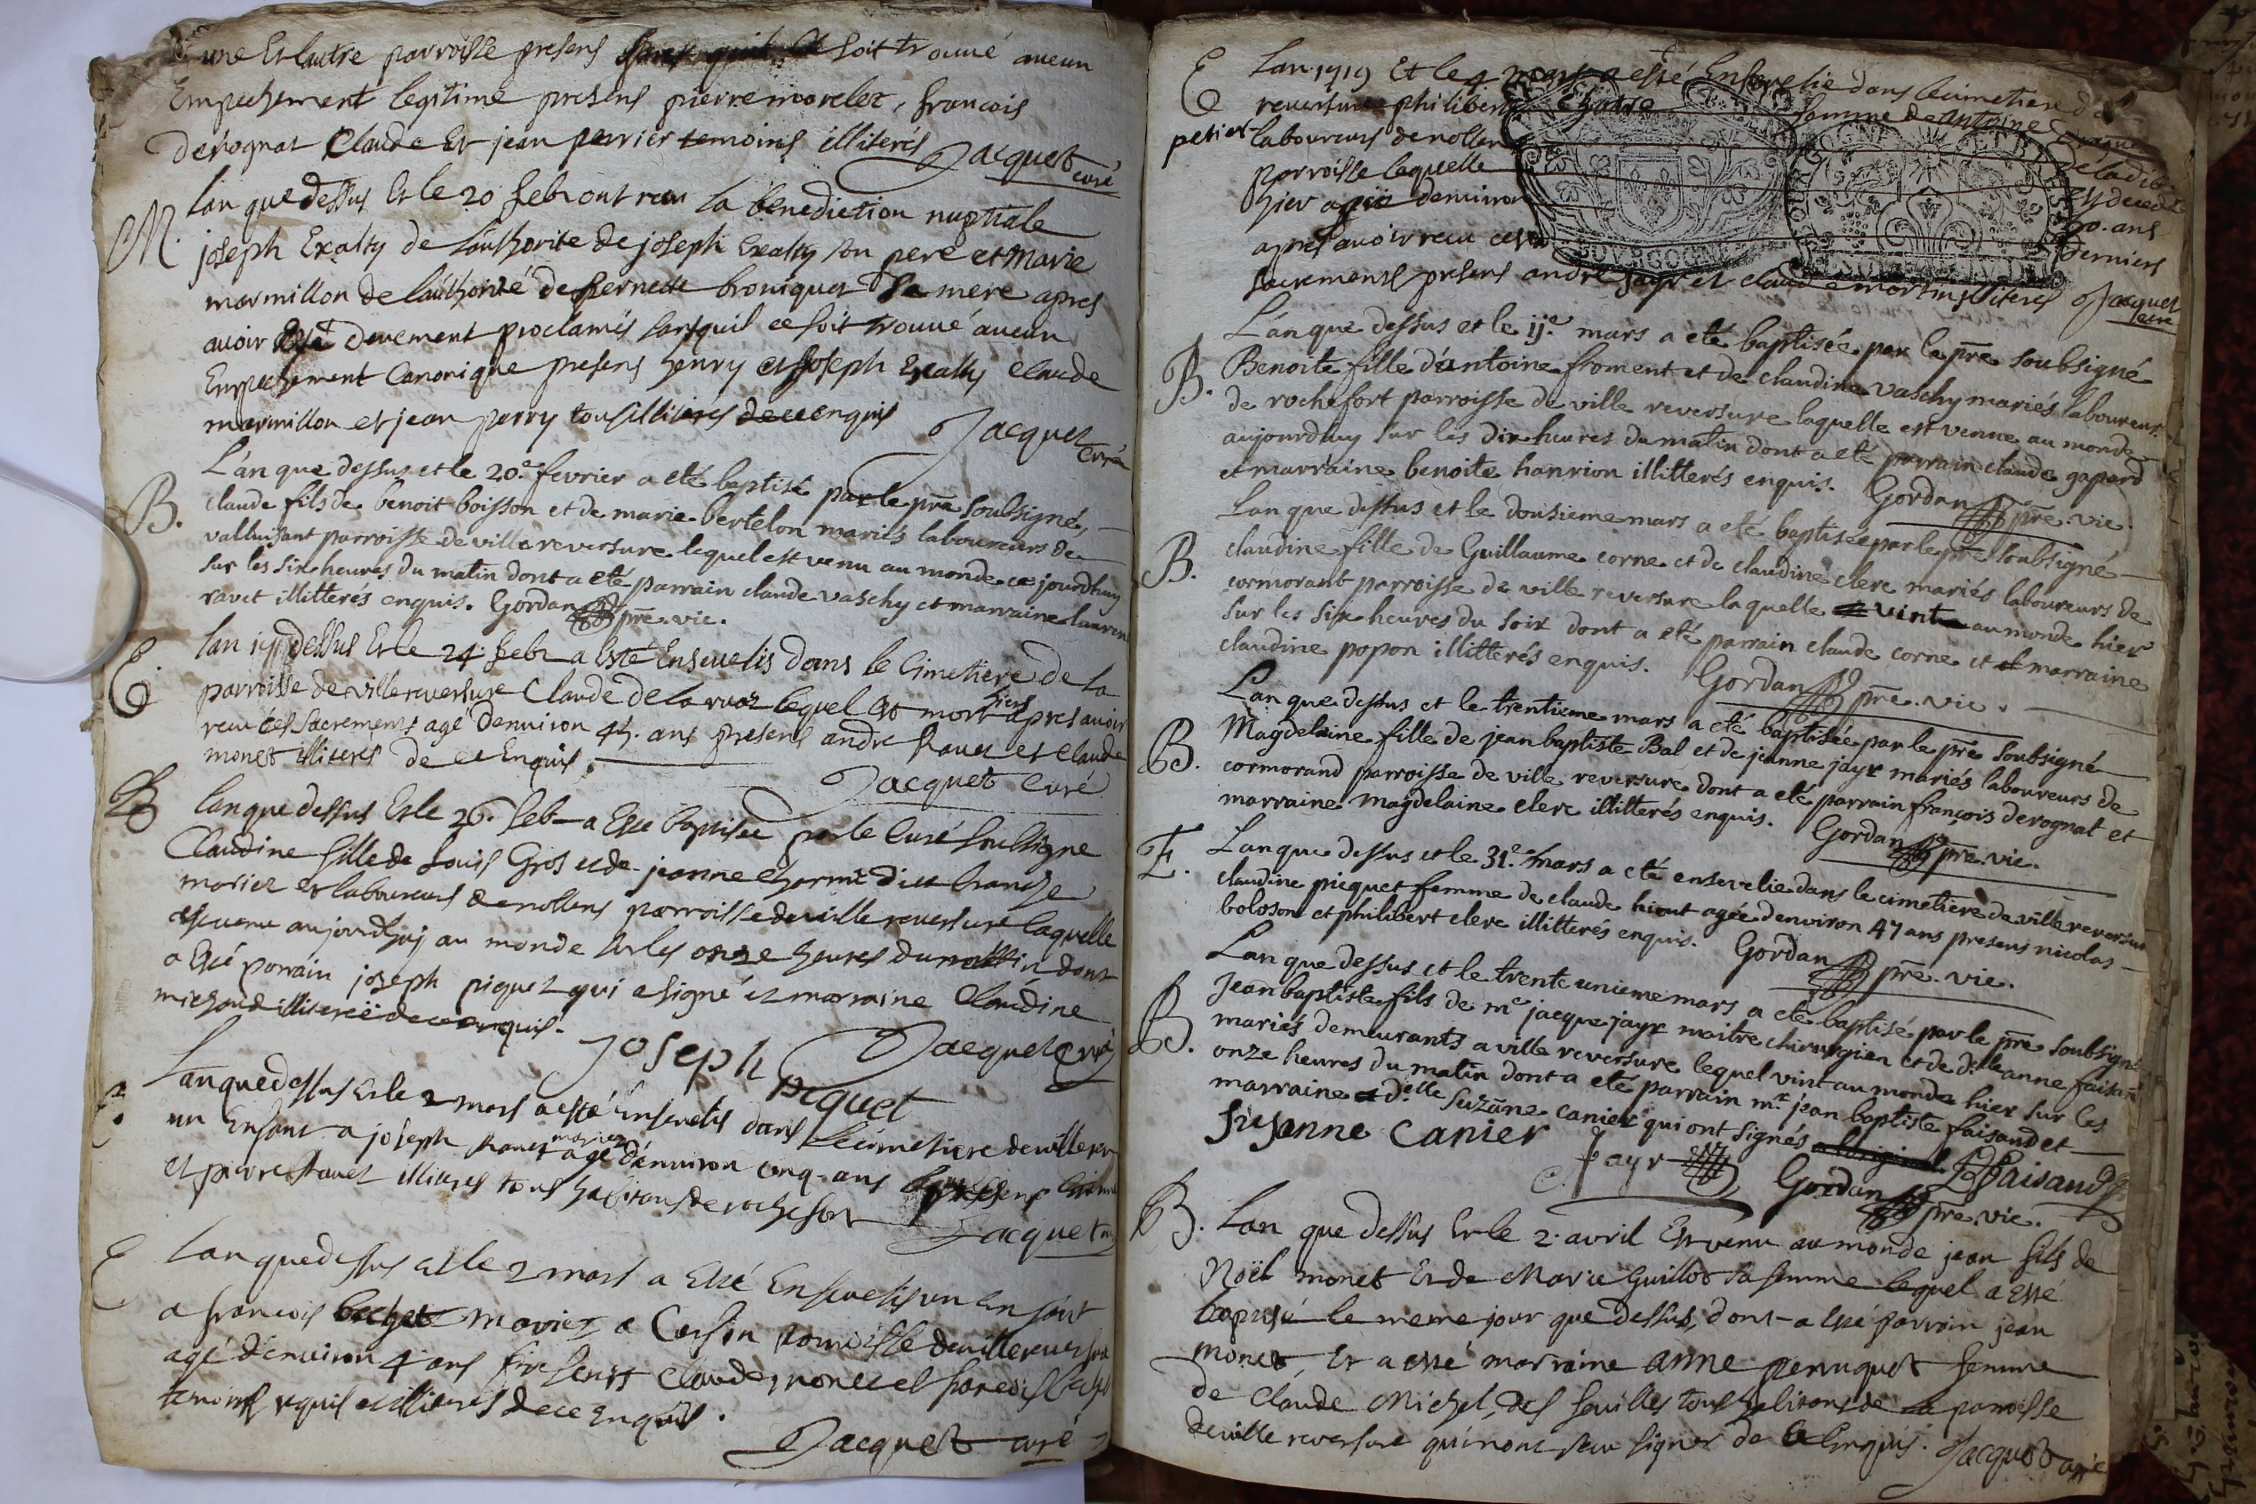 une Et lautre parroisse presens soit trouvé aucun
Empechement legitime presens pierre morelet, françois
derognat Claude Et jean perrier temoins illiterés Jacquet curé
M. lan que dessus Et le 20 febr ont receu la benediction nuptiale
joseph Exalty de l'authorité de joseph Exalty son pere et marie
marmillon de l'authorité de pernette broniquet sa mere apres
avoir Esté deuement proclamés sansquil ce soit trouvé aucun
Empechement Canonique presens henry et joseph Exalty claude
marmillon et jean perry tous illiterés de ce enquis Jacquet curé
L'an que dessus et le 20e fevrier a eté baptisé par le pre soubsigné,
B. claude fils de benoit boisson et de marie bertelon mariés laboureurs de
valluisant parroisse de ville reversure lequel est venu au monde ce jourdhuy
sur les six heures du matin dont a eté parrain claude vaschy et marraine lauren
ravet illitterés enquis. Gordan pre. vic.
lan dessus Et le 24 febr a Esté Enseuelis dans le Cimetiere de la
E. parroisse de ville reversure Claude de la ruaz lequel Est mort hier apres avoir
receu ces sacremens agé denuiron 45. ans presens andre ravet et Claude
monet illiteres de ce Enquis.
Jacquet curé
B lan que dessus Et le 26. feb a Esté baptisée par le Curé soussigne
Claudine fille de Louis Gros et de jeanne charme dict branche
mariez et laboureurs de nollens parroisse de ville reversure laquelle
est venu aujourdhuj au monde sur les onze heures du mattin dont
a Esté parrain joseph piquet qui a signé et marraine Claudine
michaud illiterée de ce enquis.
joseph piquet Jacquet Curé
E. Lan que dessus Et le 2 mars a esté Enseuelis dans le cimetiere de ville rev
un Enfant a joseph ravet mariez agé d'enuiron cinq ans presens
et pierre ravet illiteres tous habitans de rochefort Jacquet
E Lan que dessus et le 2 mars a Esté Enseuelis un Enfant
a francois bechet mariez a Corsin parroisse de ville reversure
agé d'enuiron 4 ans presens Claude monet et francois bechet
temoins requis et illiteres de ce Enquis.
Jacquet curé
E Lan 1719 Et le 4 mars a esté Enseuelie dans le cimetiere de
reversure philiberte femme de antoine
petiet laboureurs de nollens
parroisse laquelle de
hier agée denuiron ans
apres avoir receu ces derniers
sacremens presens andré jayr et claude martin illiteres Jacquet curé
L'an que dessus et le 11e mars a eté baptisée par le pre soubsigné
B. Benoite fille d'antoine froment et de claudine vaschy mariés laboureurs
de rochefort parroisse de ville reversure laquelle est venue au monde
aujourdhuy sur les dix heures du matin dont a eté parrain claude gapard
et marraine benoite hanrion illitterés enquis. Gordan pre. vic.
Lan que dessus et le dousieme mars a eté baptisée par le pre soubsigné
B. claudine fille de Guillaume corne et de claudine clerc mariés laboureurs de
cormorant parroisse de ville reversure laquelle vint au monde hier
sur les six heures du soir dont a eté parrain claude corne et marraine
claudine popon illitterés enquis. Gordan pre. vic.
Lan que dessus et le trentieme mars a eté baptisée par le pre soubsigné
B. Magdelaine fille de jean baptiste Bal et de jeanne jayr mariés laboureurs de
cormorand parroisse de ville reversure dont a eté parrain françois derognat et
marraine magdelaine clerc illitterés enquis. Gordan pre. vic.
E. Lan que dessus et le 31e mars a eté ensevelie dans le cimetiere de ville reversure
claudine picquet femme de claude hiout agée denviron 47 ans presens nicolas
boloson et philibert clerc illitterés enquis. Gordan pre. vic.
Lan que dessus et le trente unieme mars a eté baptisé par le pre soubsigné
B. Jean baptiste fils de me jacque jayr maitre chirurgien et de dlle anne faisand
mariés demeurants a ville reversure lequel vint au monde hier sur les
onze heures du matin dont a eté parrain mr jean baptiste faisand et
marraine dlle suzane canier qui ont signés
susanne canier Jayr Gordan pre. vic. Faisand
B. Lan que dessus Et le 2. avril Est venu au monde jean fils de
Noël monet Et de Marie Guillot sa femme lequel a esté
baptisé le meme jour que dessus, dont a esté parrain jean
monet, Et a esté marraine anne peruquet femme
de Claude Michel, des feuilles tous habitans de la parroisse
de ville reversure qui n'ont sceu signer de ce Enquis. Jacquet curé